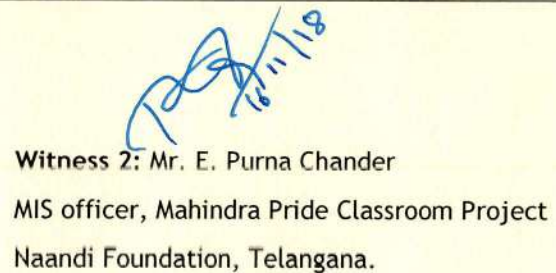 16/11/18
Witness 2: Mr. E. Purna Chander
MIS officer, Mahindra Pride Classroom Project
Naandi Foundation, Telangana.